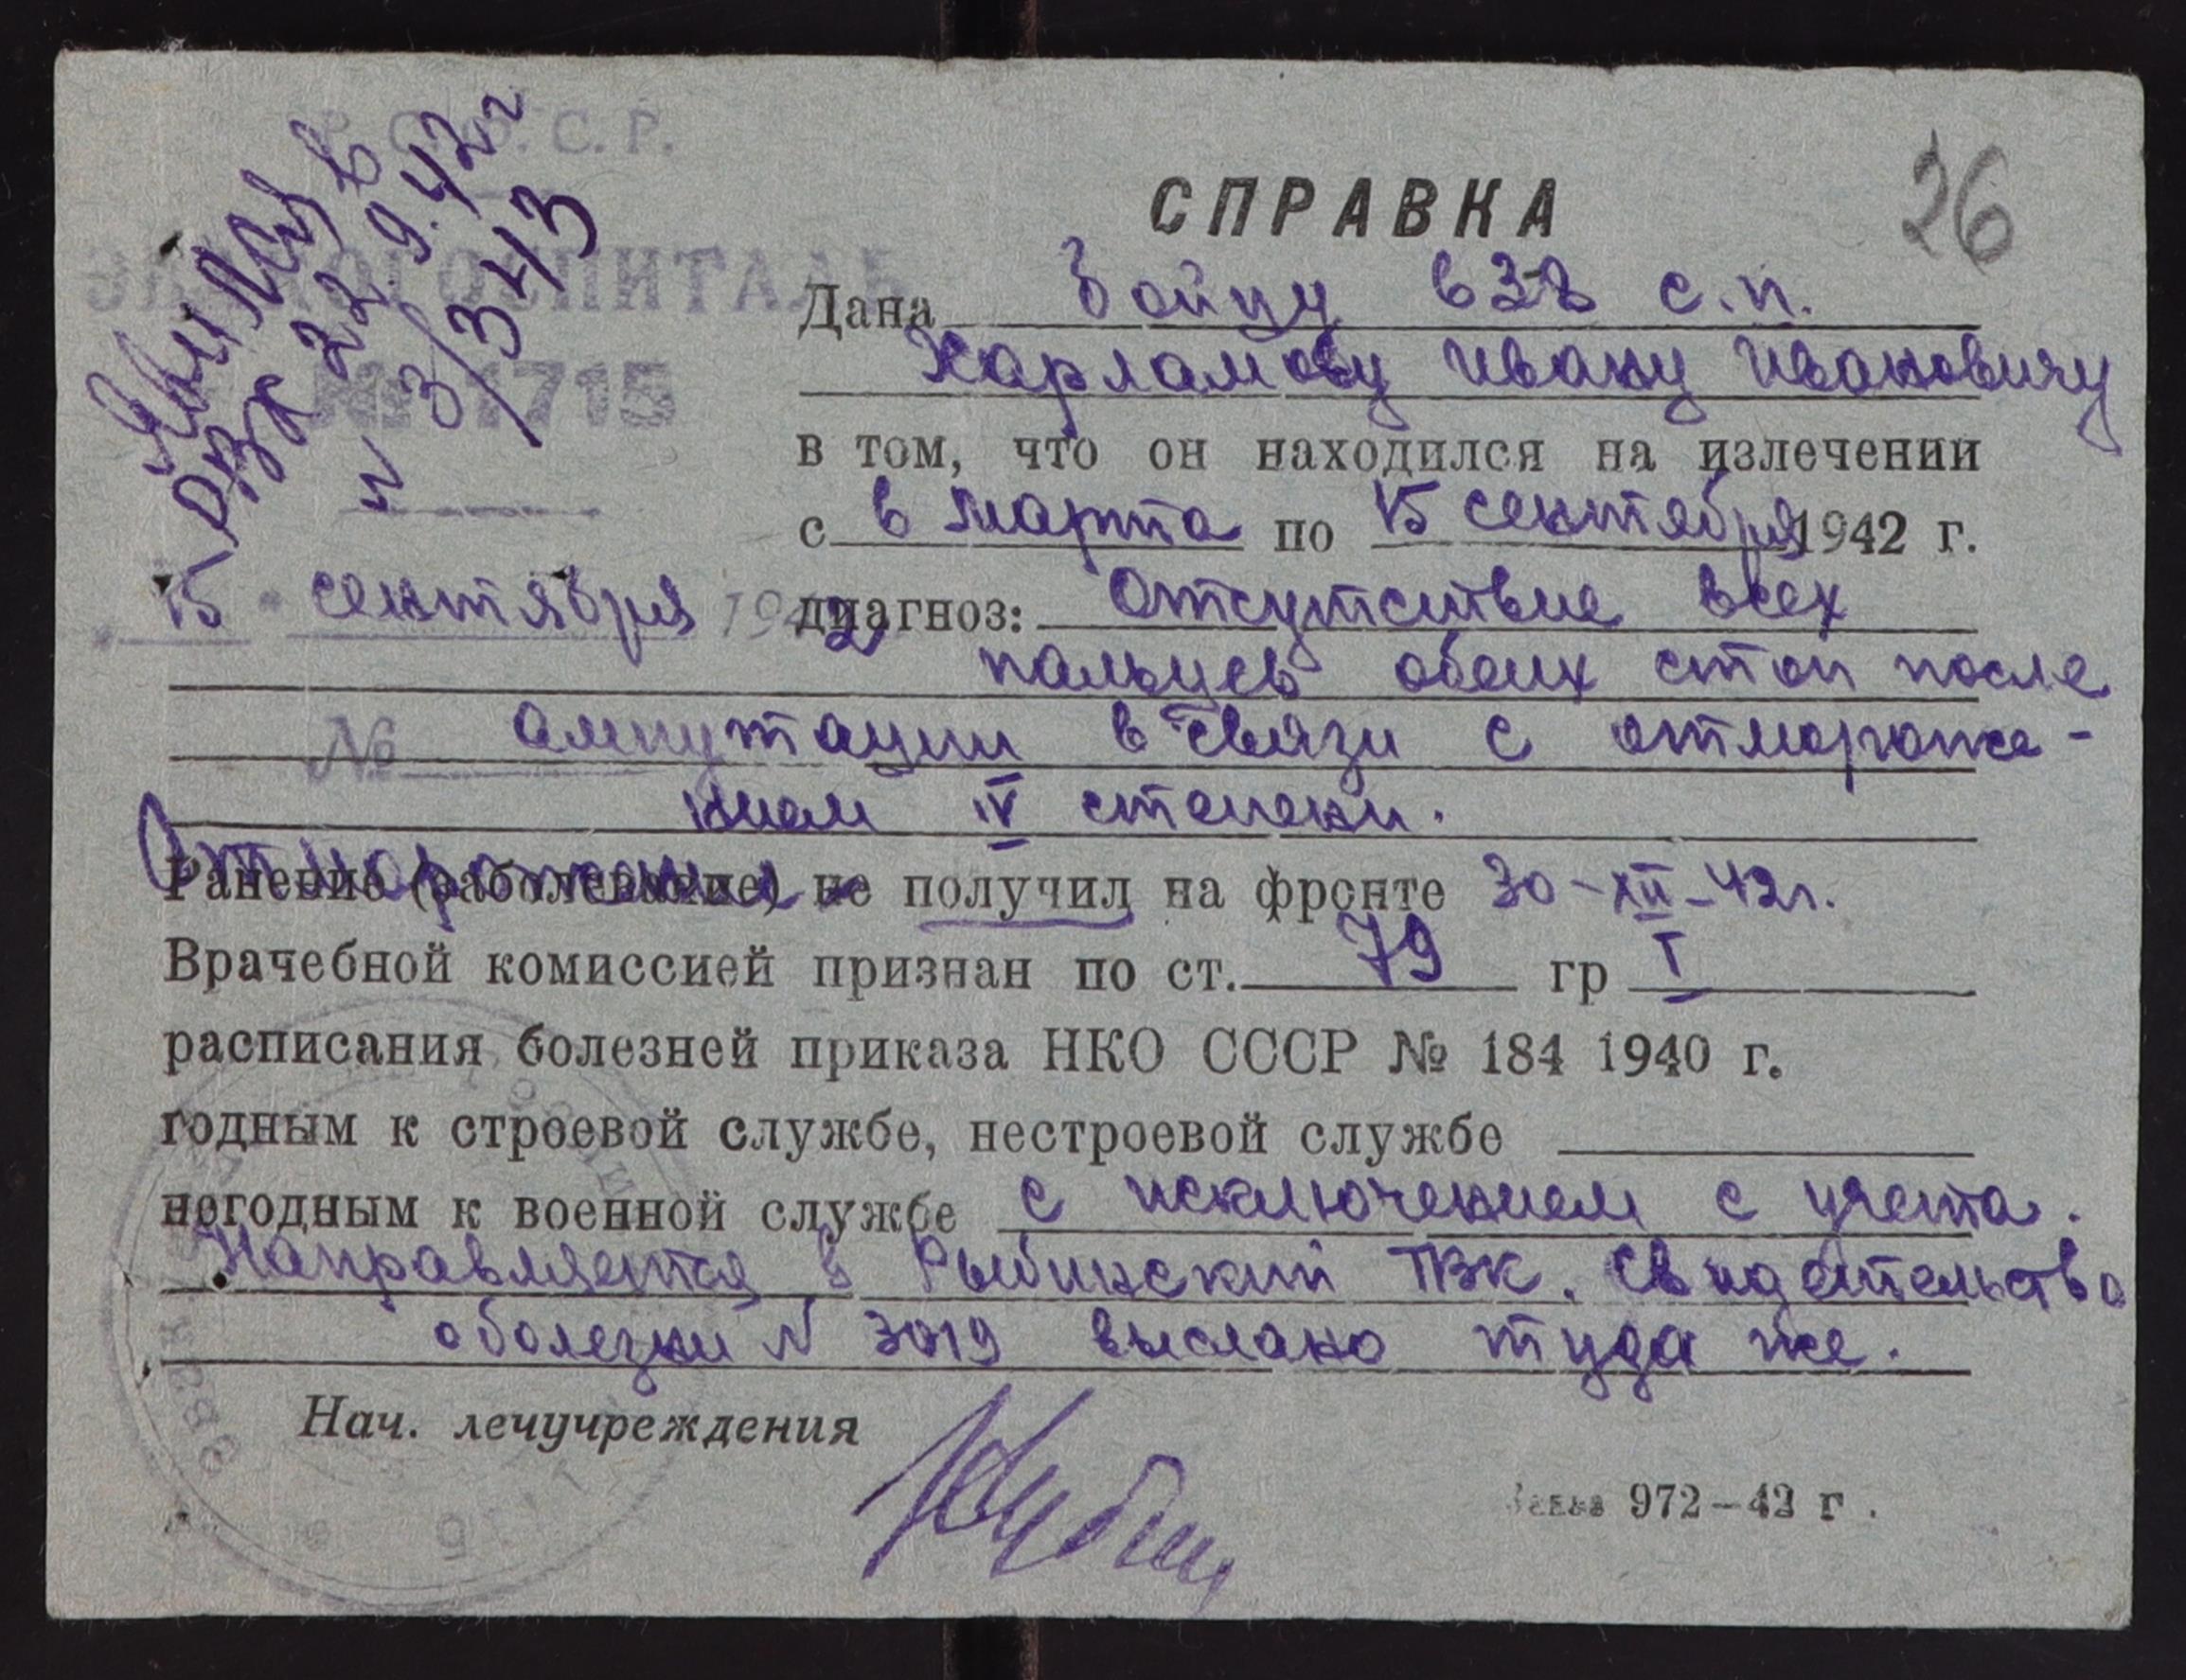 С.С.Р.
ЭВАКОГОСПИТАЛЬ
№ 1715
22.9.42 г
N 3/3343
15 сентября 1942
№
26
СПРАВКА
Дана бойцу 638 с.п.
Харламову Ивану Ивановичу
в том, что он находился на излечении
с 6 марта по 15 сентября 1942 г.
диагноз: Отсутствие всех
пальцев обеих стоп после
ампутации в связи с отмороже-
нием IV степени.
Отморожение
Ранение (заболевание) не получил на фронте 30-XII-42г.
Врачебной комиссией признан по ст. 79 гр I
расписания болезней приказа НКО СССР № 184 1940 г.
годным к строевой службе, нестроевой службе
негодным к военной службе с исключением с учета.
Направляется в Рыбинский ГВК. Свидетельство
о болезни N 3019 выслано туда же.
Нач. лечучреждения
Заказ 972—42 г.